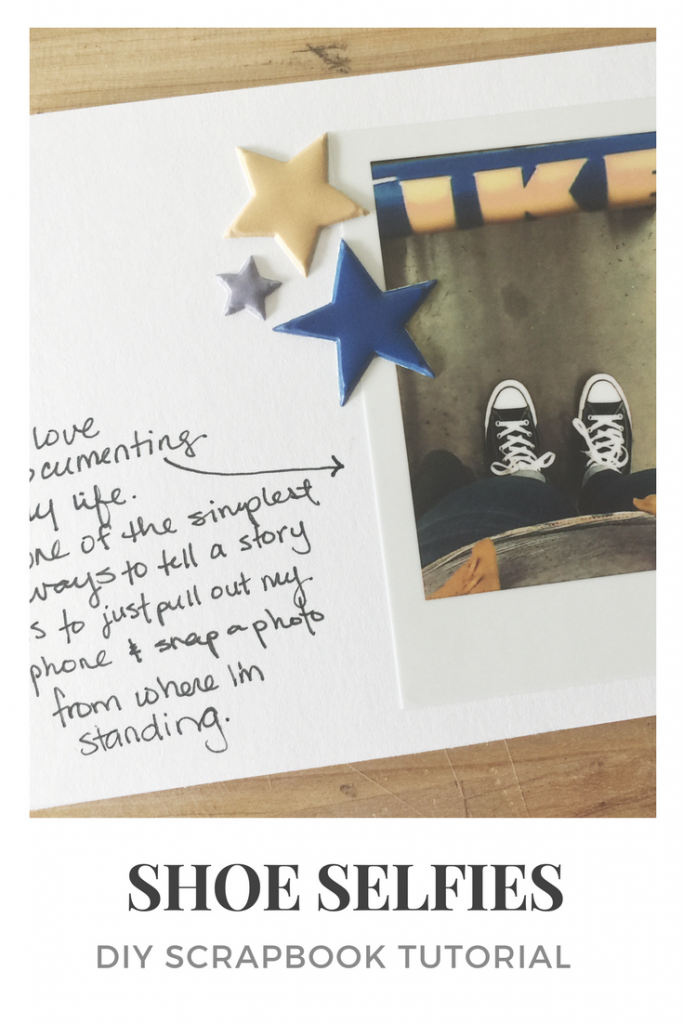 IKE
love
ocumenting
my life.
one of the simplest
ways to tell a story
s to just pull out my
phone & snap a photo
from where I'm
standing.
SHOE SELFIES
DIY SCRAPBOOK TUTORIAL